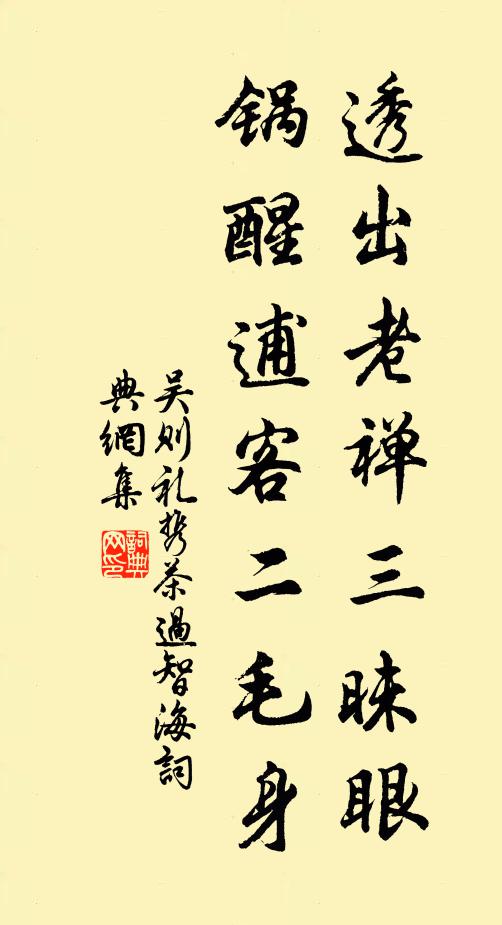 透出老禅三昧眼
锅醒逋客二毛身
吴则礼携茶過智海詞
典網集
詞典
网印